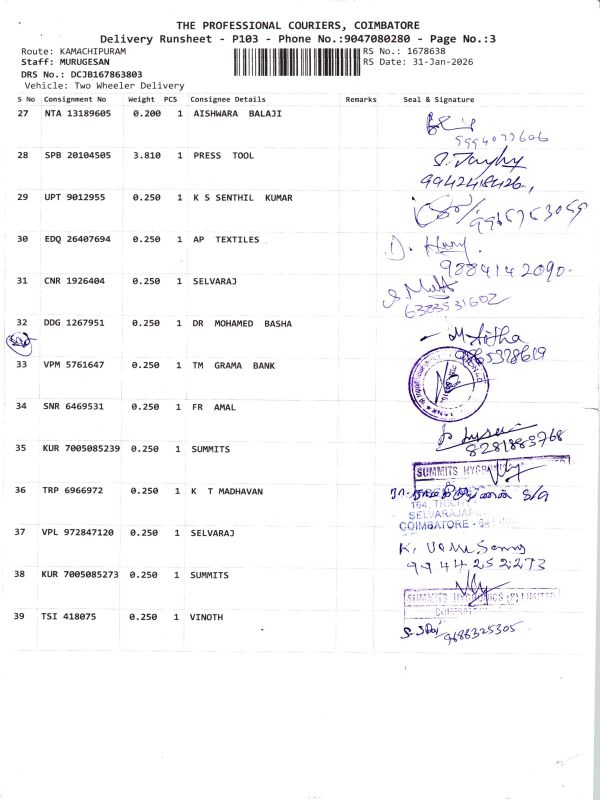 THE PROFESSIONAL COURIERS, COIMBATORE
Delivery Runsheet - P103 - Phone No.:9047080280 - Page No.:3
Route: KAMACHIPURAM
RS No.: 1678638
Staff: MURUGESAN
RS Date: 31-Jan-2026
DRS No.: DCJB167863803
Vehicle: Two Wheeler Delivery
S No Consignment No Weight PCS Consignee Details Remarks Seal & Signature
27 NTA 13189605 0.200 1 AISHWARA BALAJI
9994077606
28 SPB 20104505 3.810 1 PRESS TOOL
9942418426,
29 UPT 9012955 0.250 1 K S SENTHIL KUMAR
30 EDQ 26407694 0.250 1 AP TEXTILES
D. Hary.
9884142090.
31 CNR 1926404 0.250 1 SELVARAJ
6383531602
32 DDG 1267951 0.250 1 DR MOHAMED BASHA
33 VPM 5761647 0.250 1 TM GRAMA BANK
34 SNR 6469531 0.250 1 FR AMAL
8281883768
35 KUR 7005085239 0.250 1 SUMMITS
SUMMITS
36 TRP 6966972 0.250 1 K T MADHAVAN
S/o
164,
COIMBATORE
37 VPL 972847120 0.250 1 SELVARAJ
9944252273
38 KUR 7005085273 0.250 1 SUMMITS
SUMMITS HYGRONICS (P) LIMITED
39 TSI 418075 0.250 1 VINOTH
9688325305